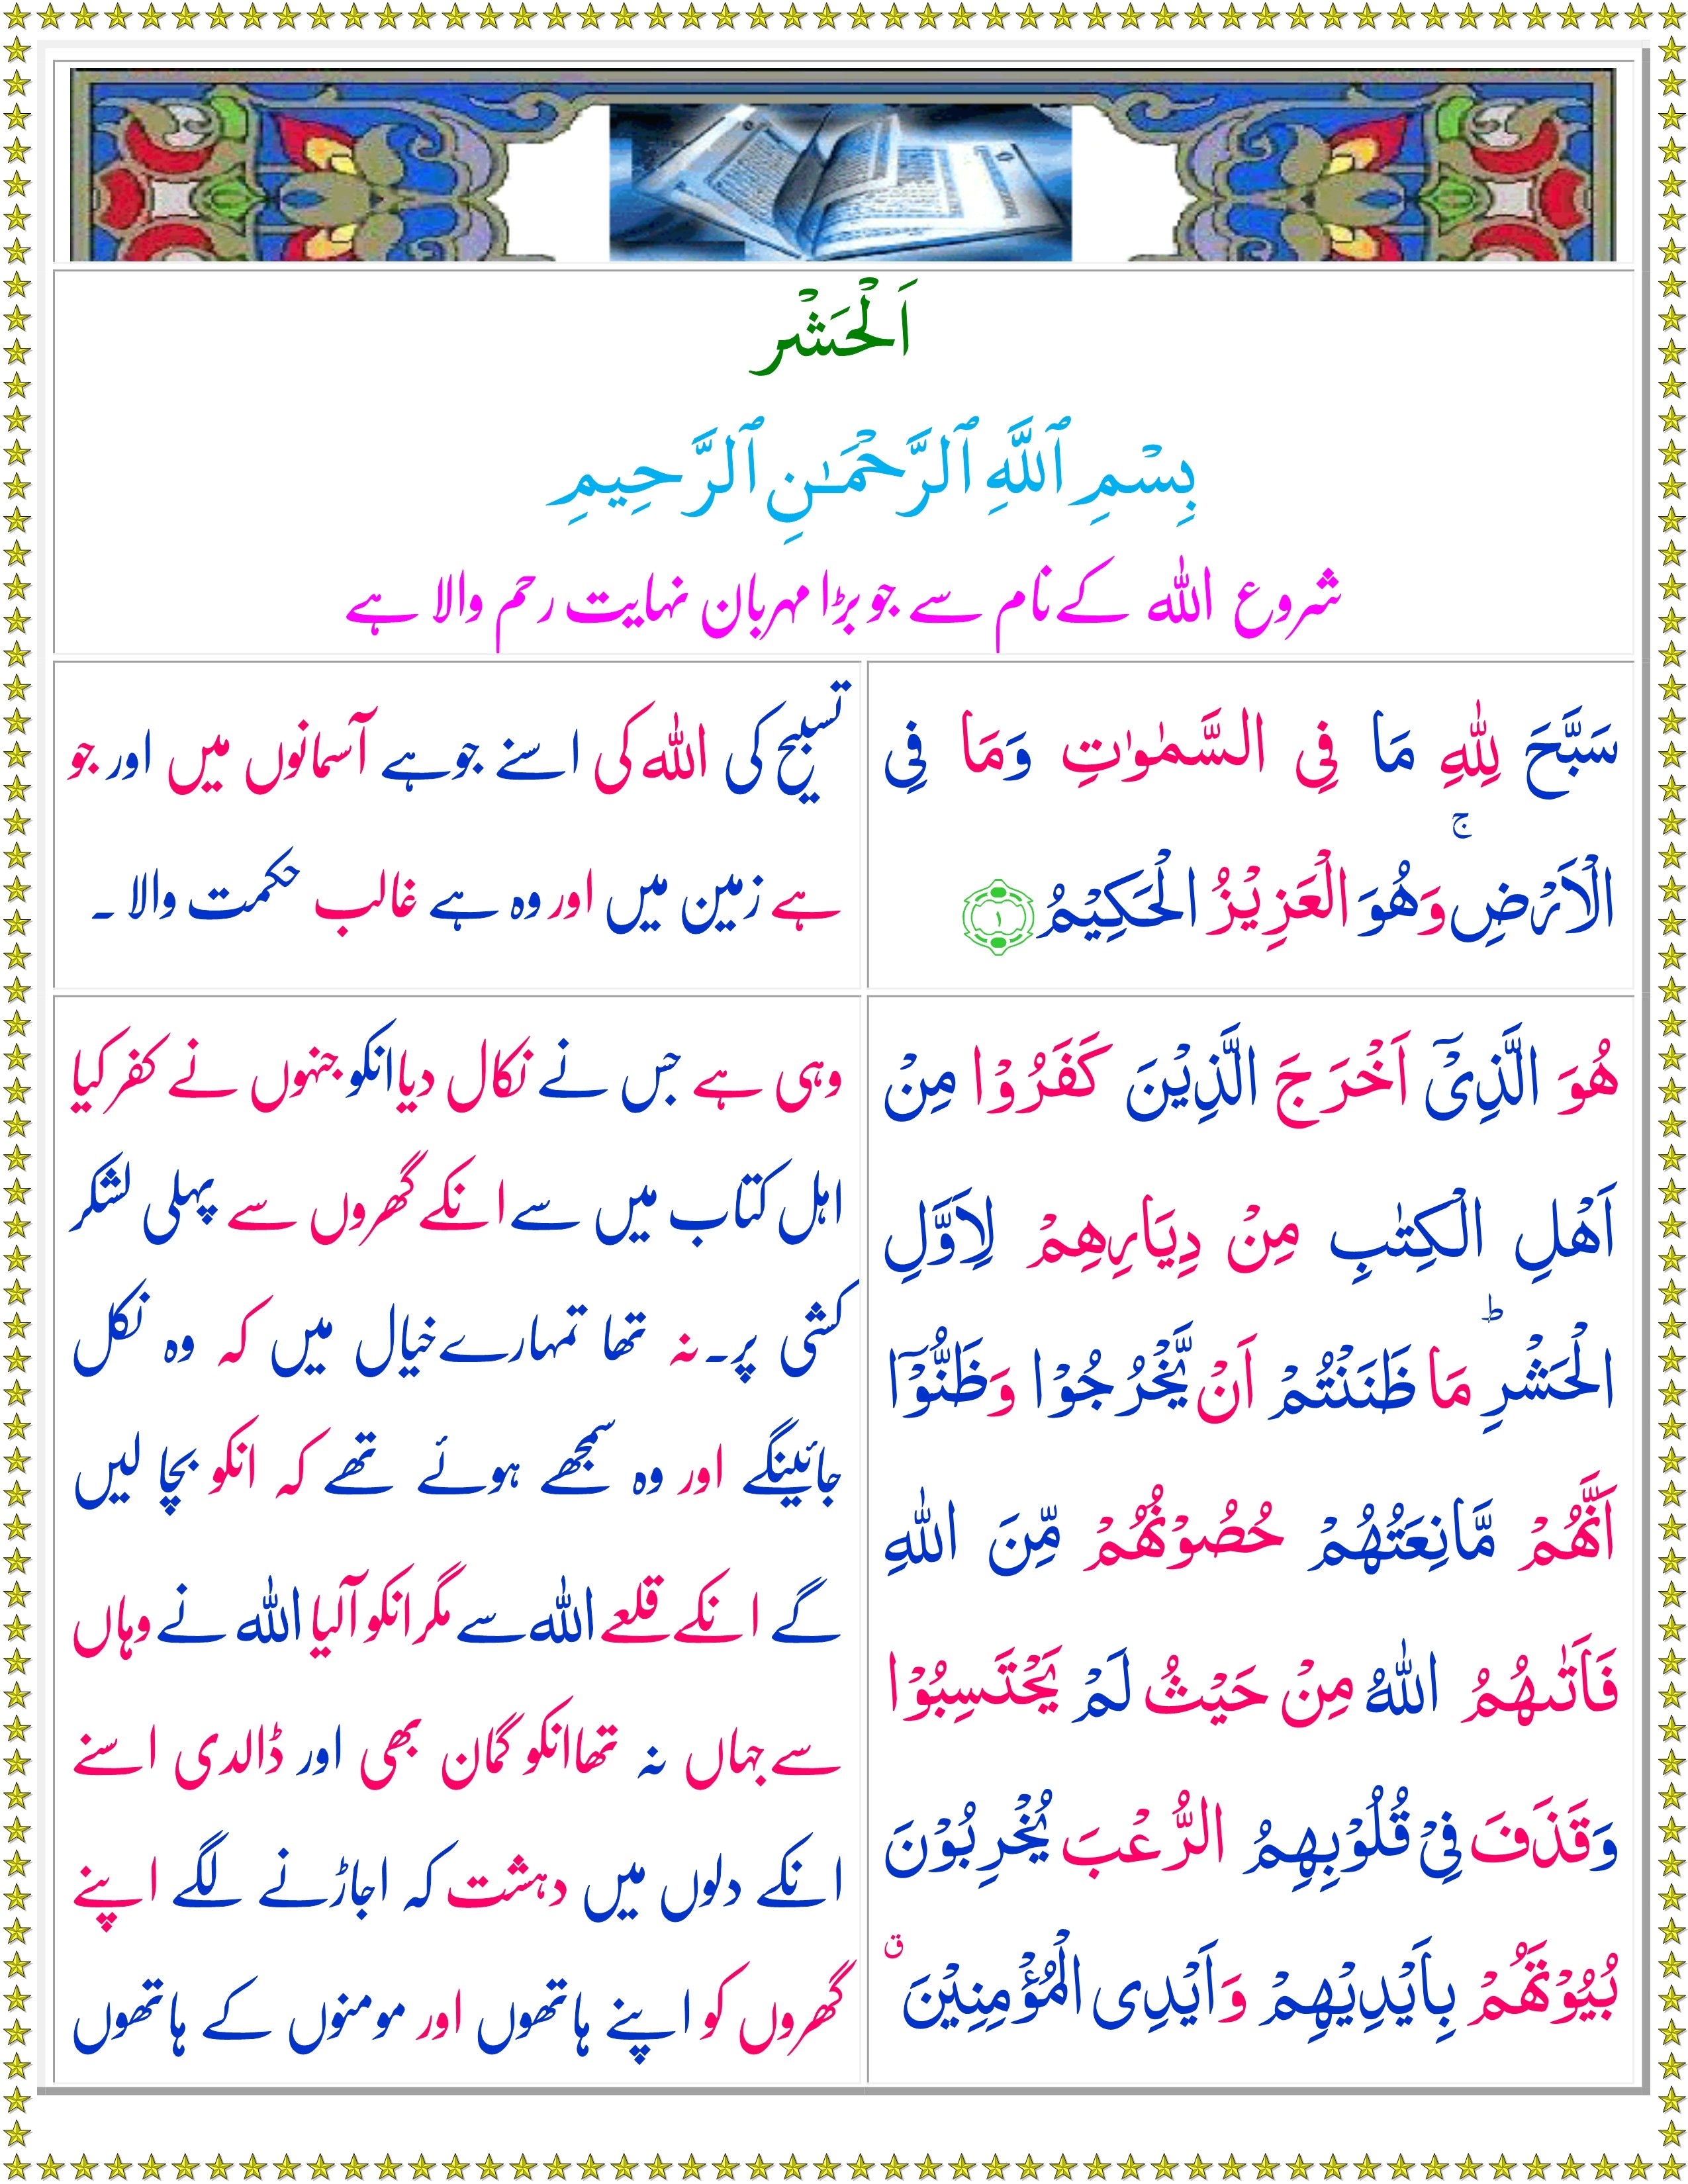 اَلْحَشْر
بِسْمِ ٱللَّهِ ٱلرَّحْمَـٰنِ ٱلرَّحِيمِ
شروع اللہ کے نام سے جو بڑا مہربان نہایت رحم والا ہے
سَبَّحَ لِلّٰهِ مَا فِى السَّمٰوٰتِ وَمَا فِى
الْاَرْضِ ۚ وَهُوَ الْعَزِيْزُ الْحَكِيْمُ ﴿۱﴾
تسبیح کی اللہ کی اسنے جو ہے آسمانوں میں اور جو
ہے زمین میں اور وہ ہے غالب حکمت والا ۔
هُوَ الَّذِىْۤ اَخْرَجَ الَّذِيْنَ كَفَرُوْا مِنْ
اَهْلِ الْكِتٰبِ مِنْ دِيَارِهِمْ لِاَوَّلِ
الْحَشْرِ ؕ مَا ظَنَنْتُمْ اَنْ يَّخْرُجُوْا وَظَنُّوْۤا
اَنَّهُمْ مَّانِعَتُهُمْ حُصُوْنُهُمْ مِّنَ اللّٰهِ
فَاَتٰٮهُمُ اللّٰهُ مِنْ حَيْثُ لَمْ يَحْتَسِبُوْا
وَقَذَفَ فِىْ قُلُوْبِهِمُ الرُّعْبَ يُخْرِبُوْنَ
بُيُوْتَهُمْ بِاَيْدِيْهِمْ وَاَيْدِى الْمُؤْمِنِيْنَ ۙ
وہی ہے جس نے نکال دیا انکو جنہوں نے کفر کیا
اہل کتاب میں سے انکے گھروں سے پہلی لشکر
کشی پر۔ نہ تھا تمہارے خیال میں کہ وہ نکل
جائینگے اور وہ سمجھے ہوئے تھے کہ انکو بچا لیں
گے انکے قلعے اللہ سے مگر انکو آلیا اللہ نے وہاں
سے جہاں نہ تھا انکو گمان بھی اور ڈالدی اسنے
انکے دلوں میں دہشت کہ اجاڑنے لگے اپنے
گھروں کو اپنے ہاتھوں اور مومنوں کے ہاتھوں